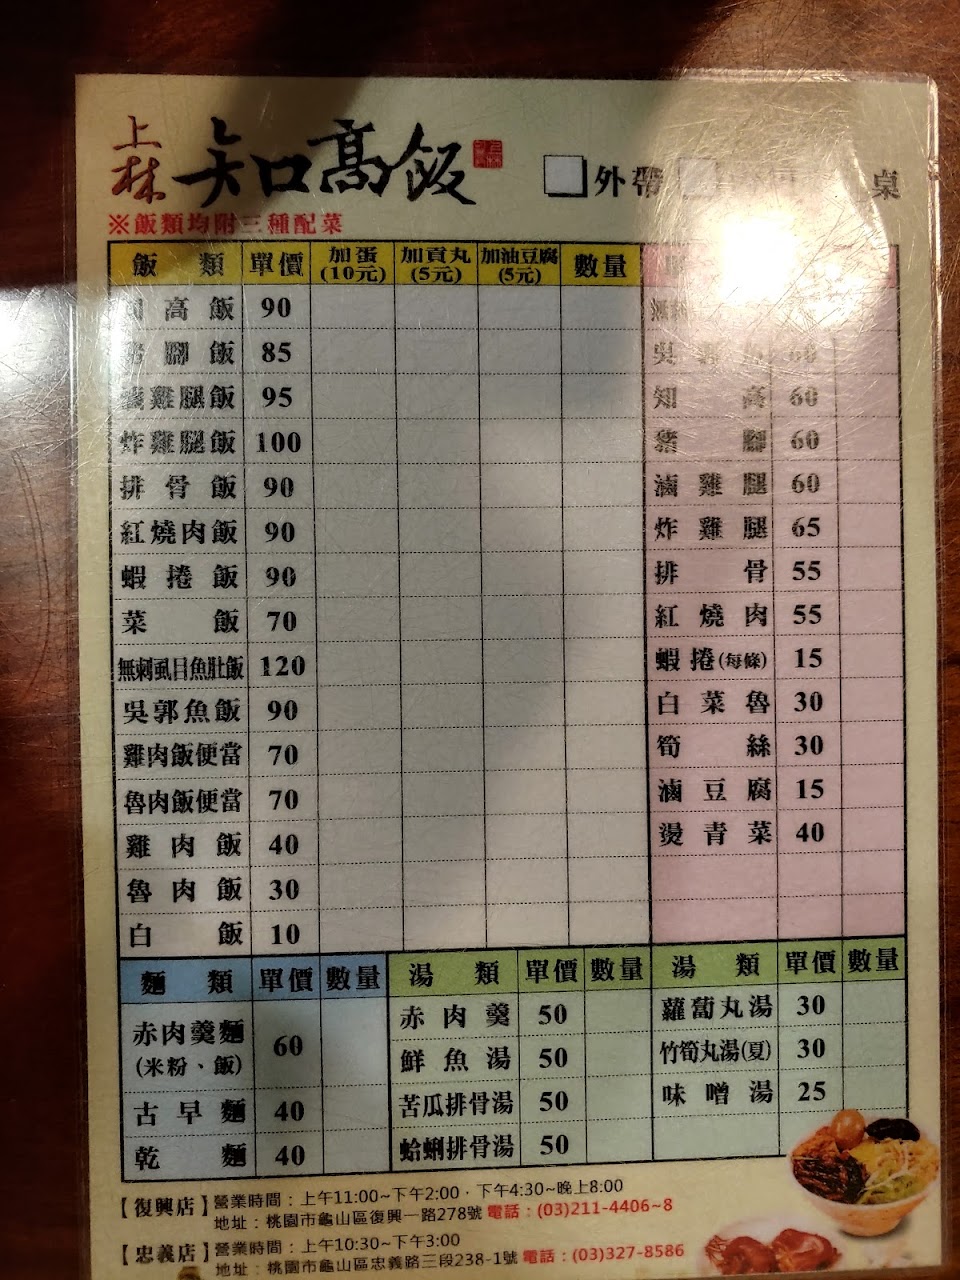 上林 知高飯
外帶 桌
※飯類均附三種配菜
飯類 單價 加蛋(10元) 加貢丸(5元) 加油豆腐(5元) 數量
高飯 90
腳飯 85
雞腿飯 95
炸雞腿飯 100
排骨飯 90
紅燒肉飯 90
蝦捲飯 90
菜飯 70
無刺虱目魚肚飯 120
吳郭魚飯 90
雞肉飯便當 70
魯肉飯便當 70
雞肉飯 40
魯肉飯 30
白飯 10
吳 60
知高 60
豬腳 60
滷雞腿 60
炸雞腿 65
排骨 55
紅燒肉 55
蝦捲(每條) 15
白菜魯 30
筍絲 30
滷豆腐 15
燙青菜 40
麵類 單價 數量
赤肉羹麵
(米粉、飯) 60
古早麵 40
乾麵 40
湯類 單價 數量
赤肉羹 50
鮮魚湯 50
苦瓜排骨湯 50
蛤蜊排骨湯 50
湯類 單價 數量
蘿蔔丸湯 30
竹筍丸湯(夏) 30
味噌湯 25
【復興店】營業時間：上午11:00~下午2:00，下午4:30~晚上8:00
地址：桃園市龜山區復興一路278號 電話：(03)211-4406~8
【忠義店】營業時間：上午10:30~下午3:00
地址：桃園市龜山區忠義路三段238-1號 電話：(03)327-8586